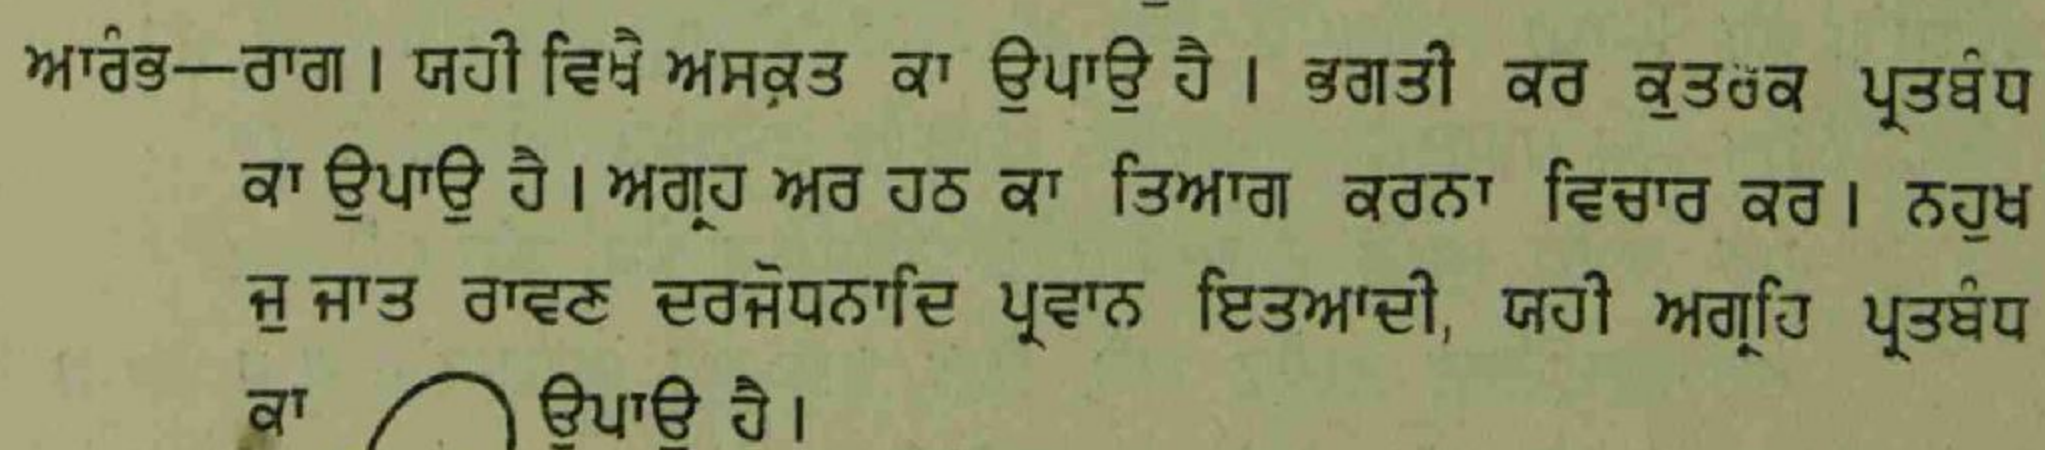 ਆਰੰਭ—ਰਾਗ । ਯਹੀ ਵਿਖੈ ਅਸਕ੍ਰਤ ਕਾ ਉਪਾਉ ਹੈ । ਭਗਤੀ ਕਰ ਕੁਤਰੱਕ ਪ੍ਰਤਬੰਧ
ਕਾ ਉਪਾਉ ਹੈ । ਅਗ੍ਰਹ ਅਰ ਹਠ ਕਾ ਤਿਆਗ ਕਰਨਾ ਵਿਚਾਰ ਕਰ । ਨਹੁਖ
ਜੁ ਜਾਤ ਰਾਵਣ ਦਰਜੋਧਨਾਦਿ ਪ੍ਰਵਾਨ ਇਤਆਦੀ, ਯਹੀ ਅਗ੍ਰਹਿ ਪ੍ਰਤਬੰਧ
ਕਾ ਉਪਾਉ ਹੈ ।